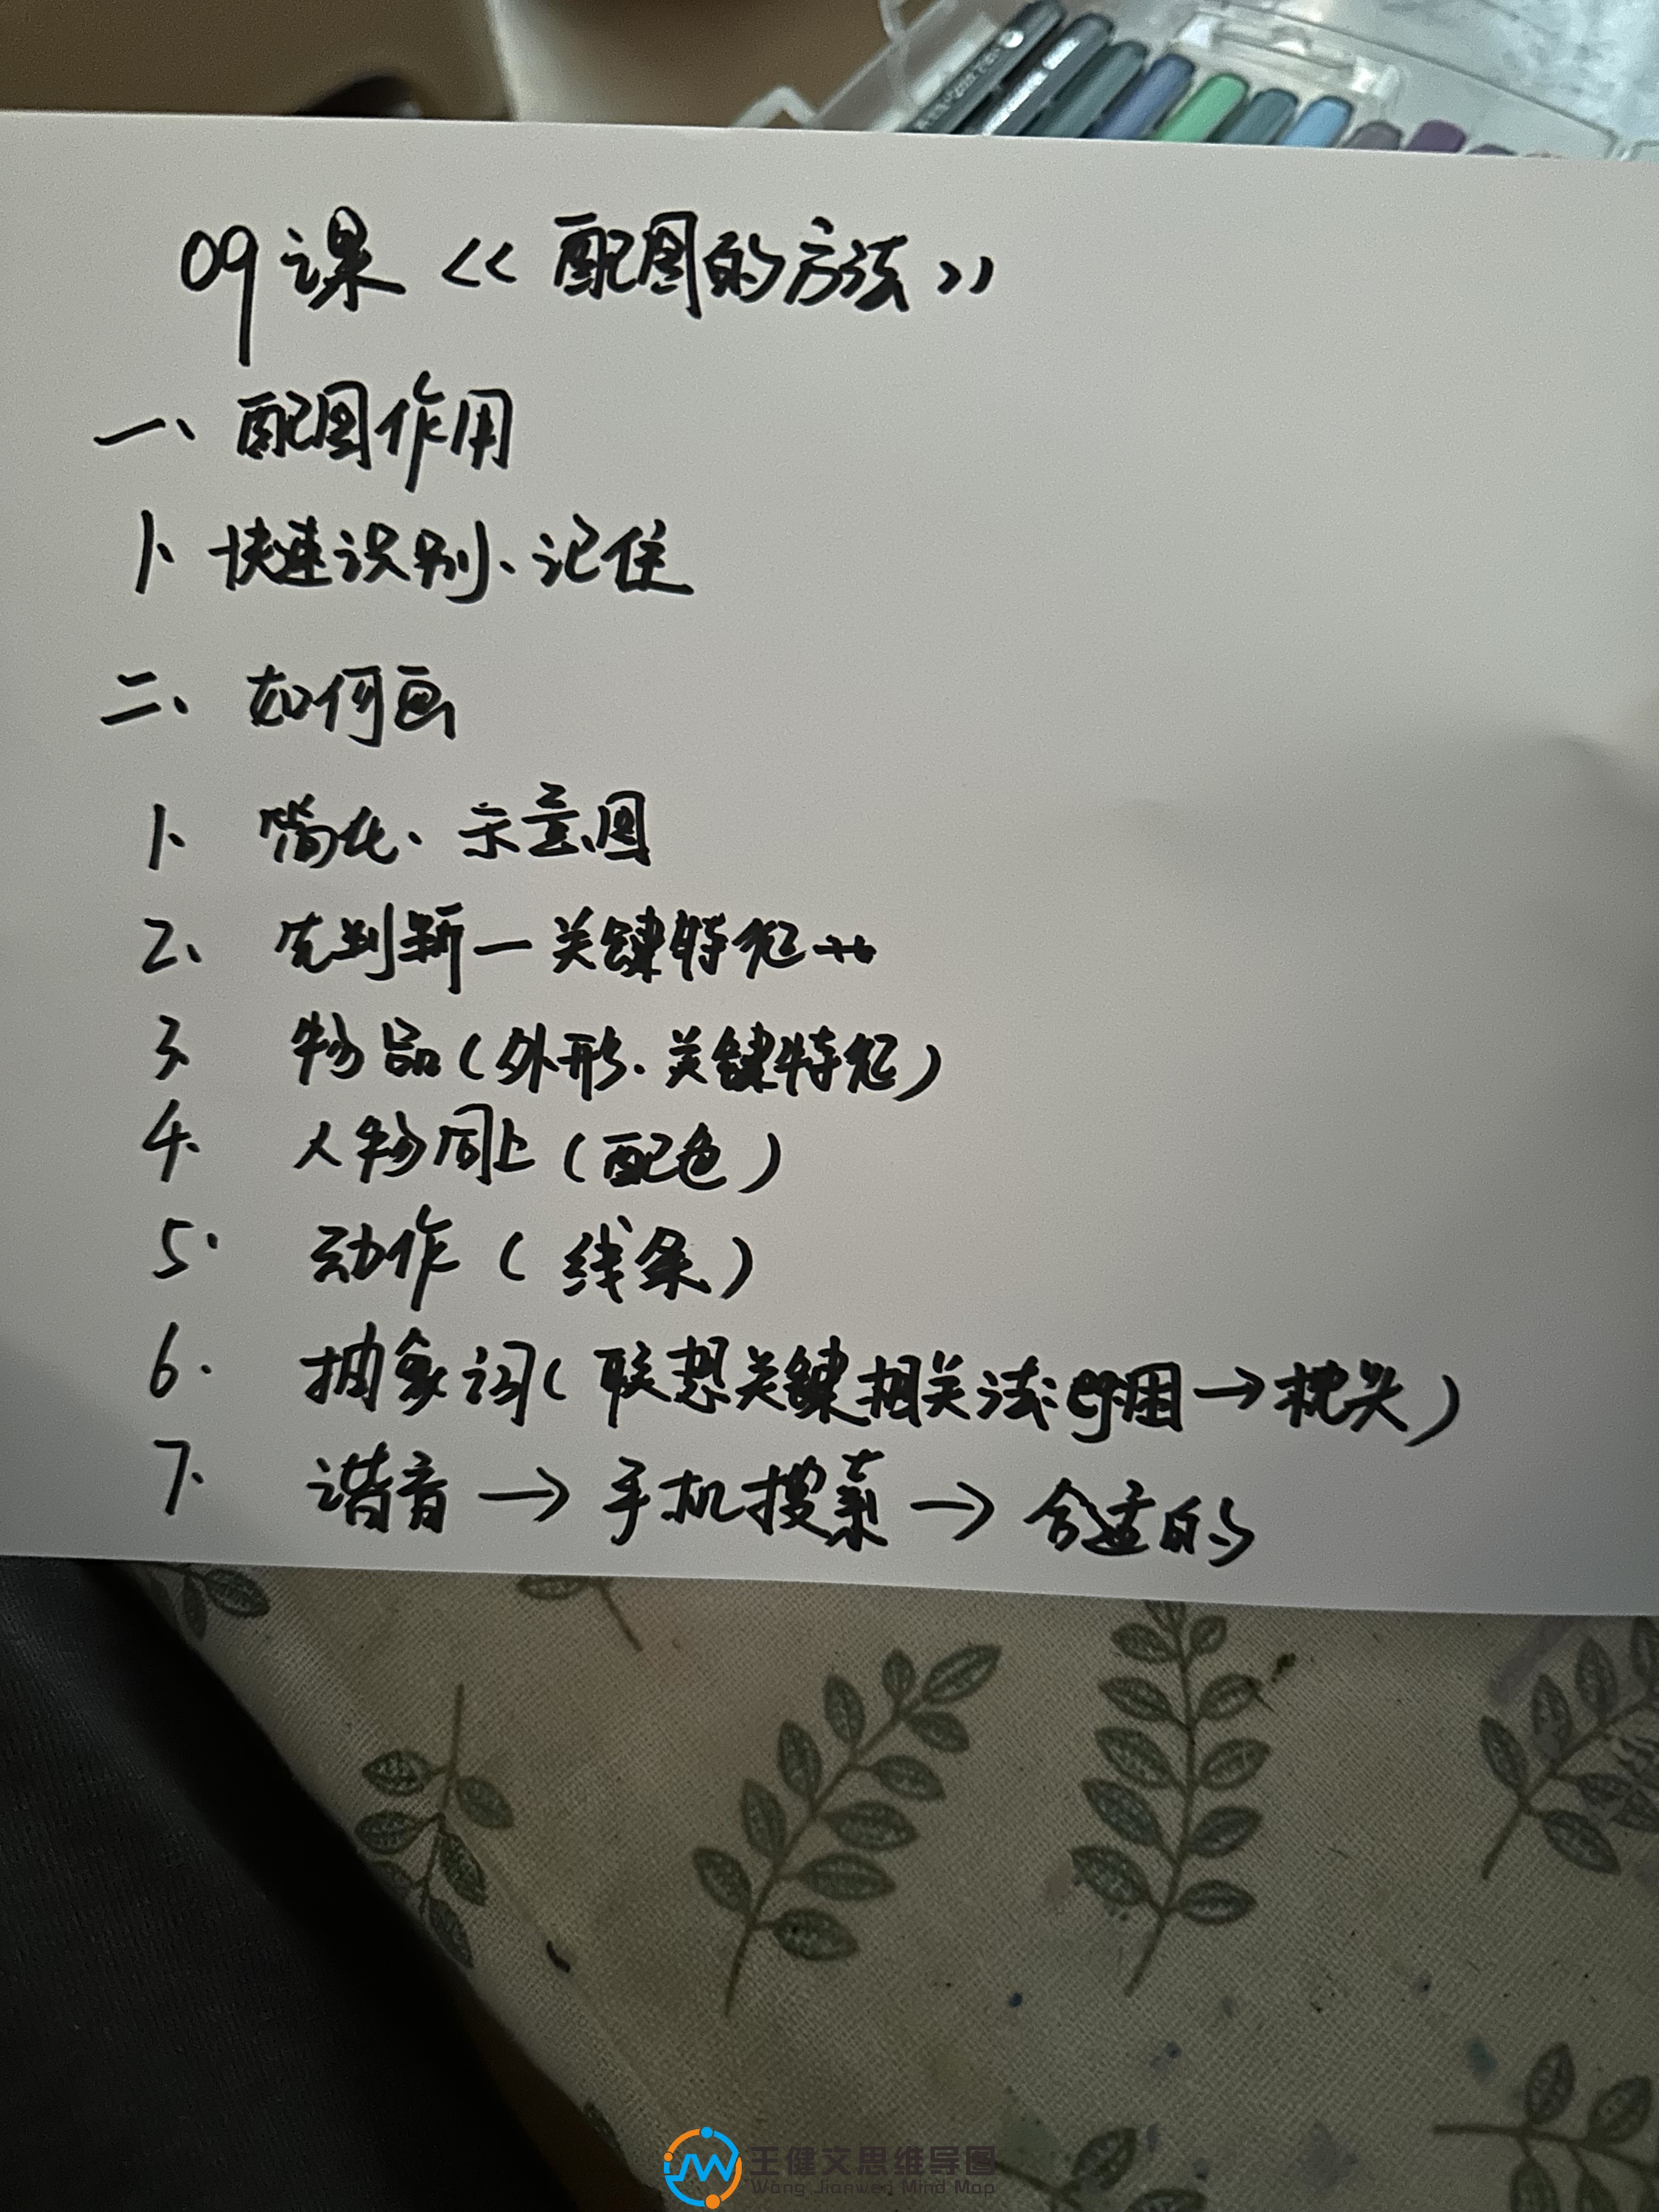 09课《配图的方法》
一、配图作用
1、快速识别、记住
二、如何画
1、简化、示意图
2、先判断一关键特征
3、物品(外形、关键特征)
4、人物同上(配色)
5、动作(线条)
6、抽象词(联想关键相关法eg困→枕头)
7、谐音→手机搜索→合适的
王健文思维导图
Wang Jianwen Mind Map